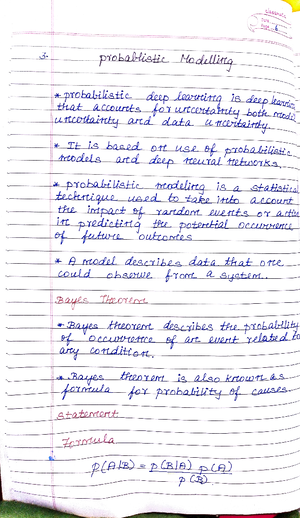 3. probablistic Modelling
* probabilistic deep learning is deep learning
that accounts for uncertainty both model
uncertainty and data uncertainty.
* It is based on use of probabilistic
models and deep neural networks.
* probabilistic modeling is a statistical
technique used to take into account
the impact of random events or
in predicting the potential occurrence
of future outcomes
* A model describes data that one
could observe from a system.
Bayes Theorem
* Bayes theorem describes the probability
of occurrence of an event related to
any condition.
* Bayes theorem is also known as
formula for probability of causes
Statement
Formula
p(A|B) = p(B|A) p(A)
p(B)